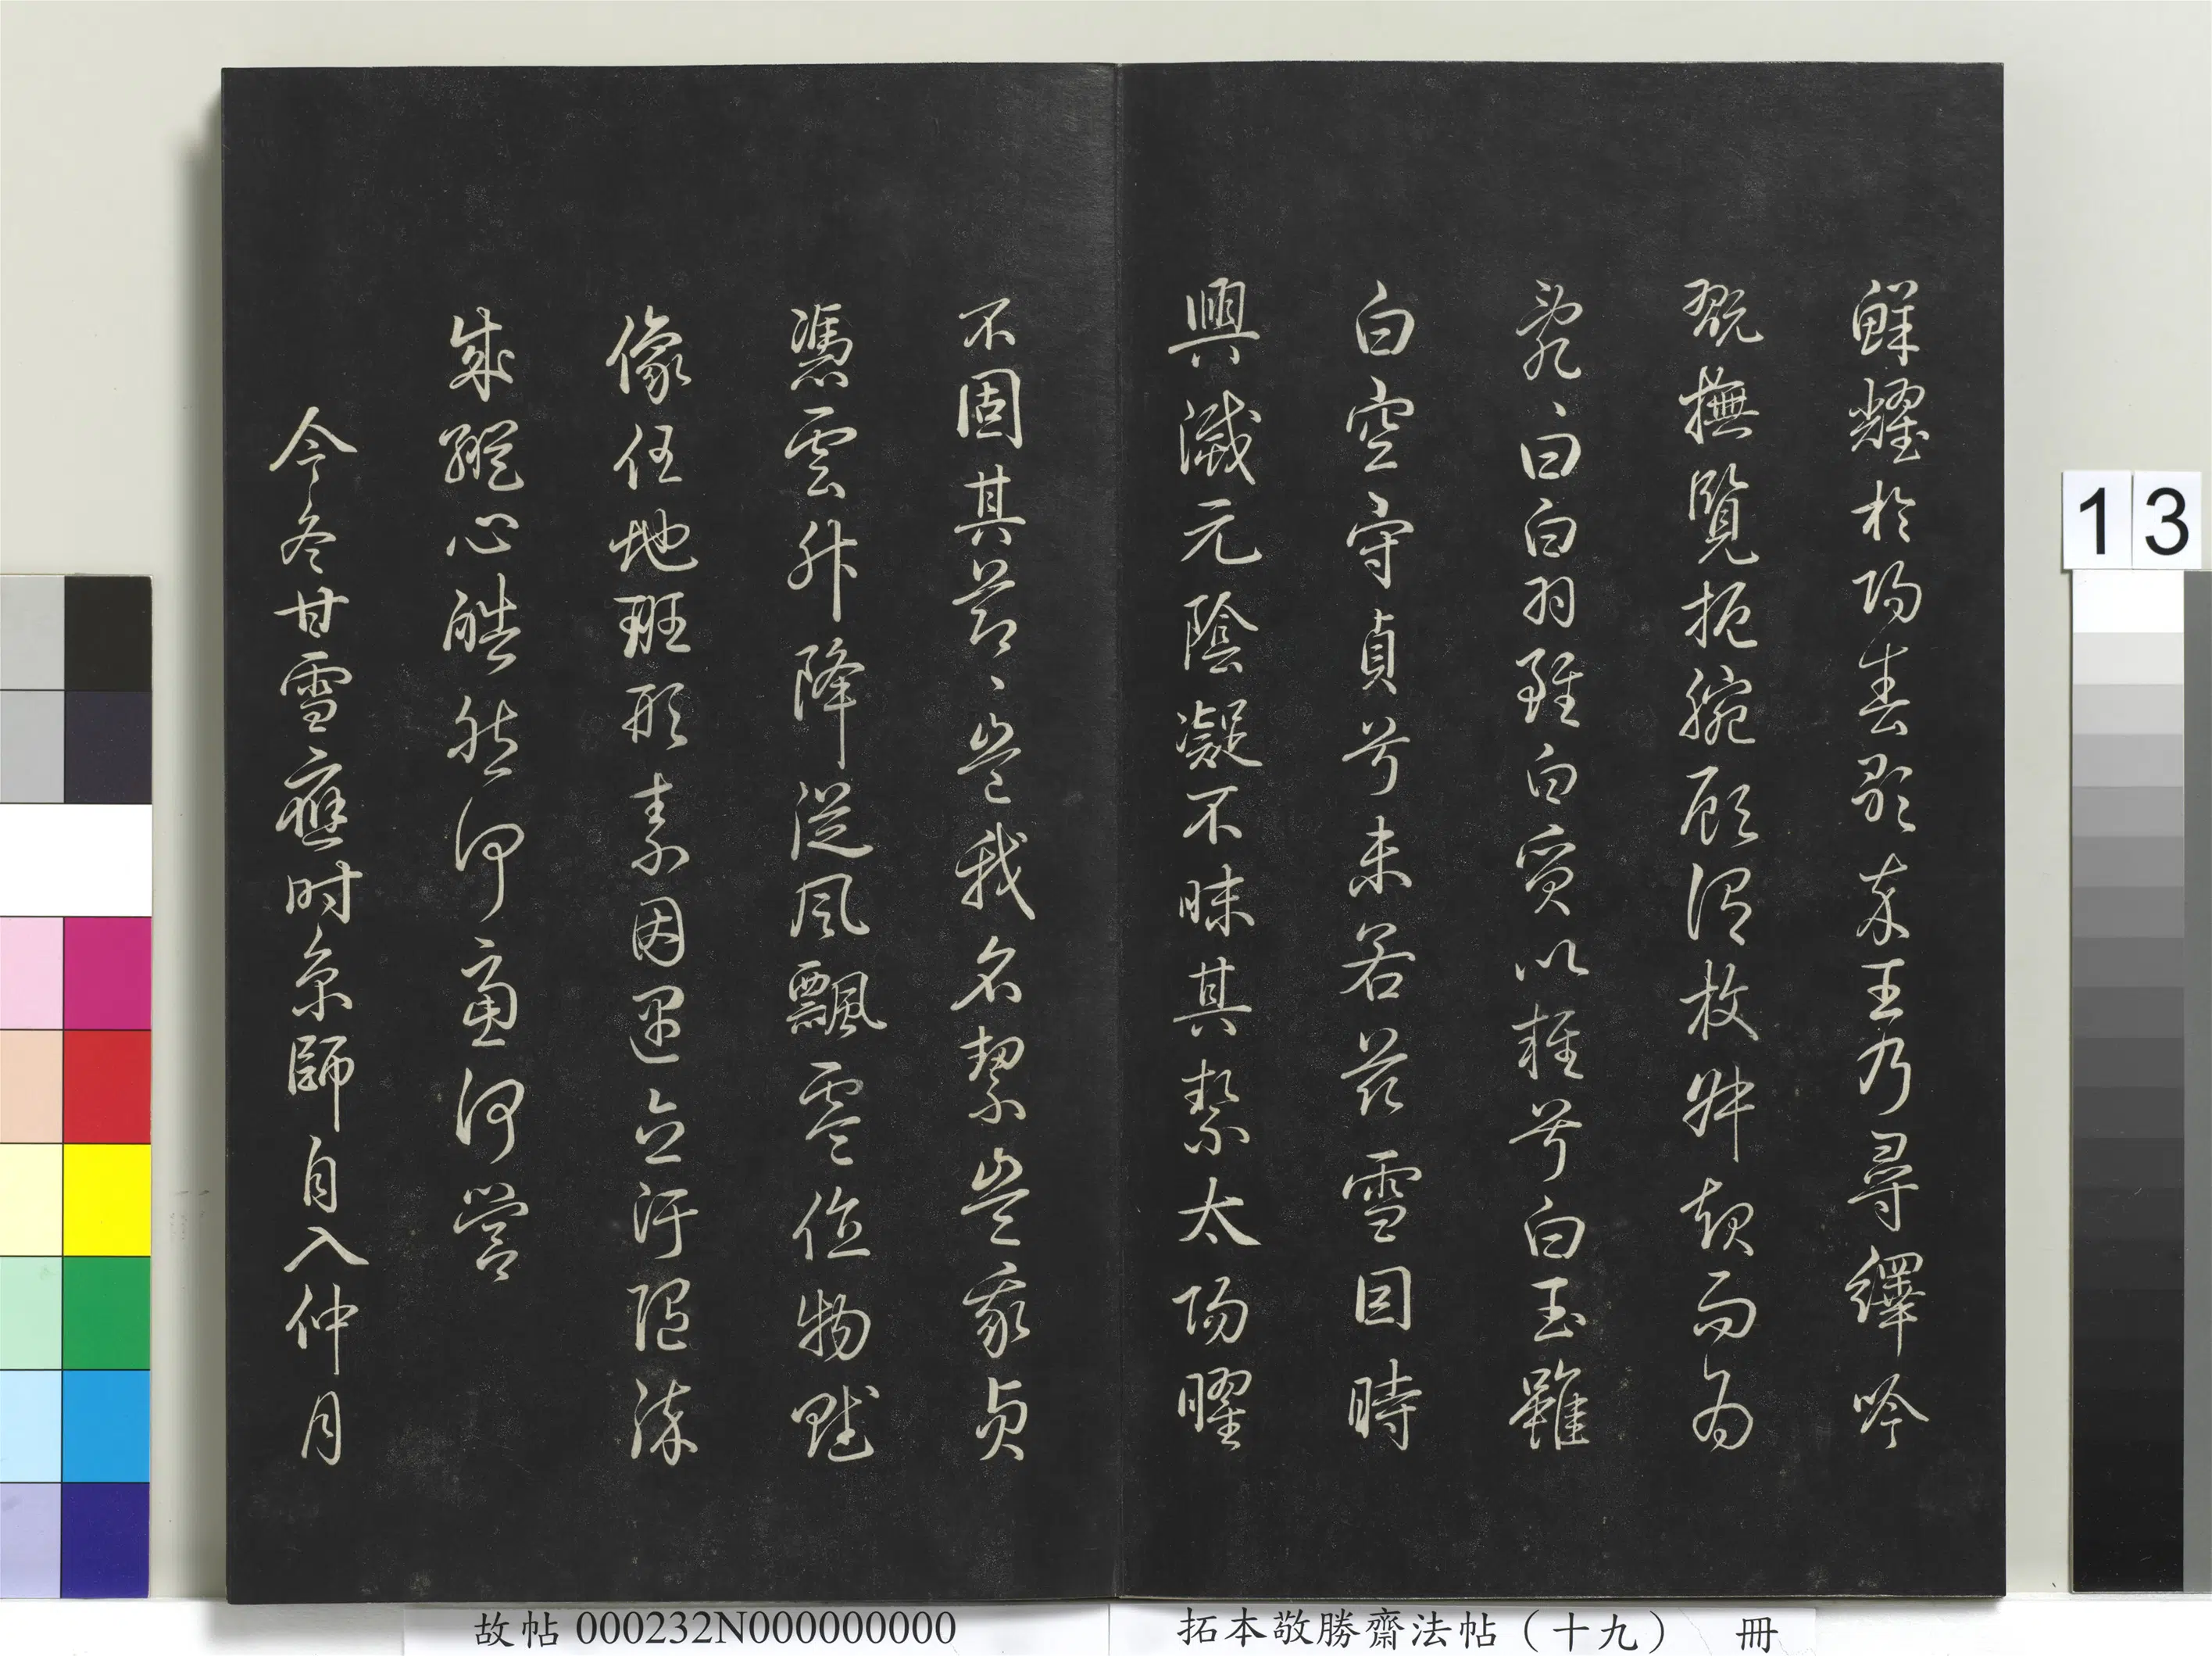 鮮耀於陽春歌卒王乃尋繹吟
翫撫覽扼腕顧謂枚叔起而為
亂〻曰白羽雖白質以輕兮白玉雖
白空守貞兮未若茲雪因時
興滅元陰凝不昧其絜太陽曜
不固其節〻豈我名絜豈我貞
憑雲升降從風飄零值物賦
像任地班形素因遇立汙隨染
成縱心皓然何慮何營
今冬甘雪應时京師自入仲月
13
故帖 000232N000000000
拓本敬勝齋法帖（十九） 冊